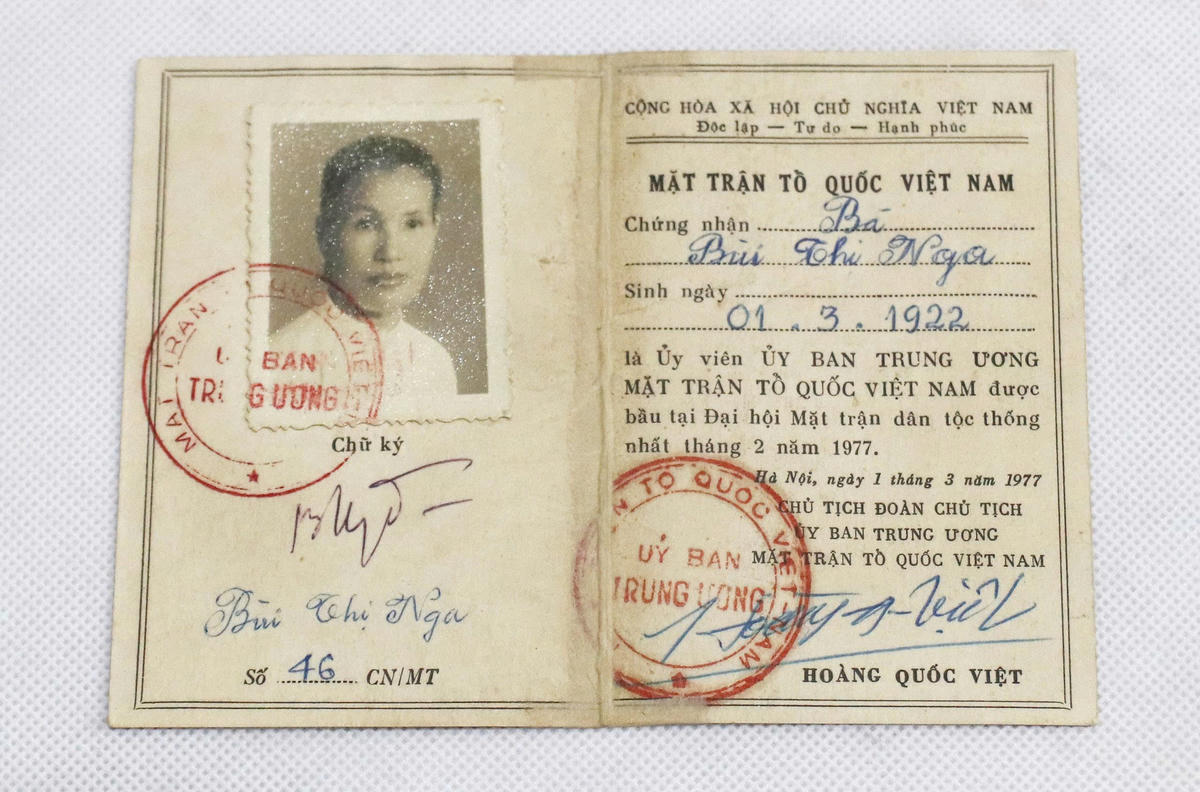 MẶT TRẬN TỔ QUỐC VIỆT
ỦY BAN
TRUNG ƯƠNG
Chữ ký
Bùi Thị Nga
Số 46 CN/MT
CỘNG HÒA XÃ HỘI CHỦ NGHĨA VIỆT NAM
Độc lập — Tự do — Hạnh phúc
MẶT TRẬN TỔ QUỐC VIỆT NAM
Chứng nhận Bà
Bùi Thị Nga
Sinh ngày
01.3.1922
là Ủy viên ỦY BAN TRUNG ƯƠNG
MẶT TRẬN TỔ QUỐC VIỆT NAM được
bầu tại Đại hội Mặt trận dân tộc thống
nhất tháng 2 năm 1977.
Hà Nội, ngày 1 tháng 3 năm 1977
CHỦ TỊCH ĐOÀN CHỦ TỊCH
ỦY BAN TRUNG ƯƠNG
MẶT TRẬN TỔ QUỐC VIỆT NAM
TỔ QUỐC VIỆT-NAM
ỦY BAN
TRUNG ƯƠNG
HOÀNG QUỐC VIỆT